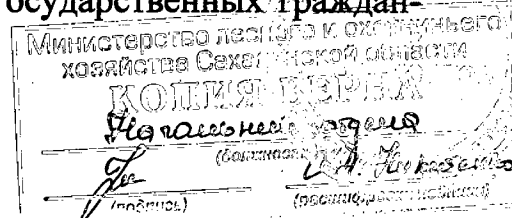 осударственных граждан-
Министерство лесного и охотничьего
хозяйства Сахалинской области
КОПИЯ ВЕРНА
Начальник отдела
(должность)
(подпись)